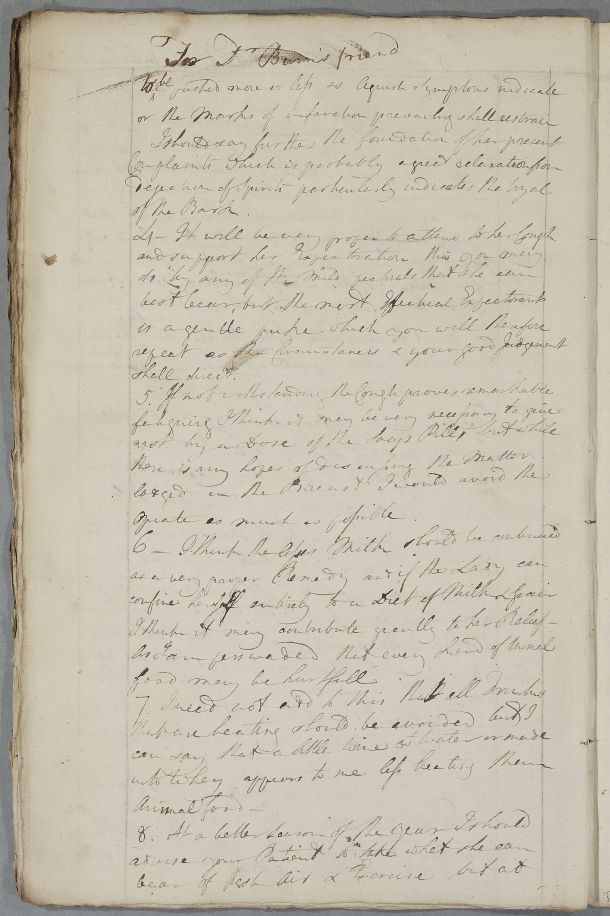 For Dr Burn's friend
to be pushed more or less as Aguish Symptoms indicate
or the Marks of inflammation prevailing shall restrain
I should say further the foundation of her present
Complaints which is probably a great relaxation from
Dejection of Spirits particularly indicates the tryal
of the Bark.
4 - It will be very proper to attend to her Cough
and support her Expectoration this you may
do by any of the mild pectorals that she can
best bear, but the most Effectual Expectorant
is a gentle puke which you will therefore
repeat as the Circumstances & your good Judgement
shall direct.
5. If notwithstanding the Cough proves remarkable
fatiguing I think it may be very necessary to give
rest by a dose of the Soap Pills but while
there is any hopes of discussing the Matter
lodged in the Breast I would avoid the
opiate as much as possible.
6 - I think the Asses Milk should be continued
as a very proper Remedy and if the Lady can
confine herself entirely to a Diet of Milk & Grain
I think it may contribute greatly to her Relief -
As I am perswaded that every kind of Animal
food may be hurtfull
7. I need not add to this that all Drinks
that are heating should be avoided but I
can say that a little wine & water or made
into whey appears to me less heating than
Animal food -
8. At a better Season of the year I should
advise your Patient to take what she can
bear of fresh Air & Exercise but at